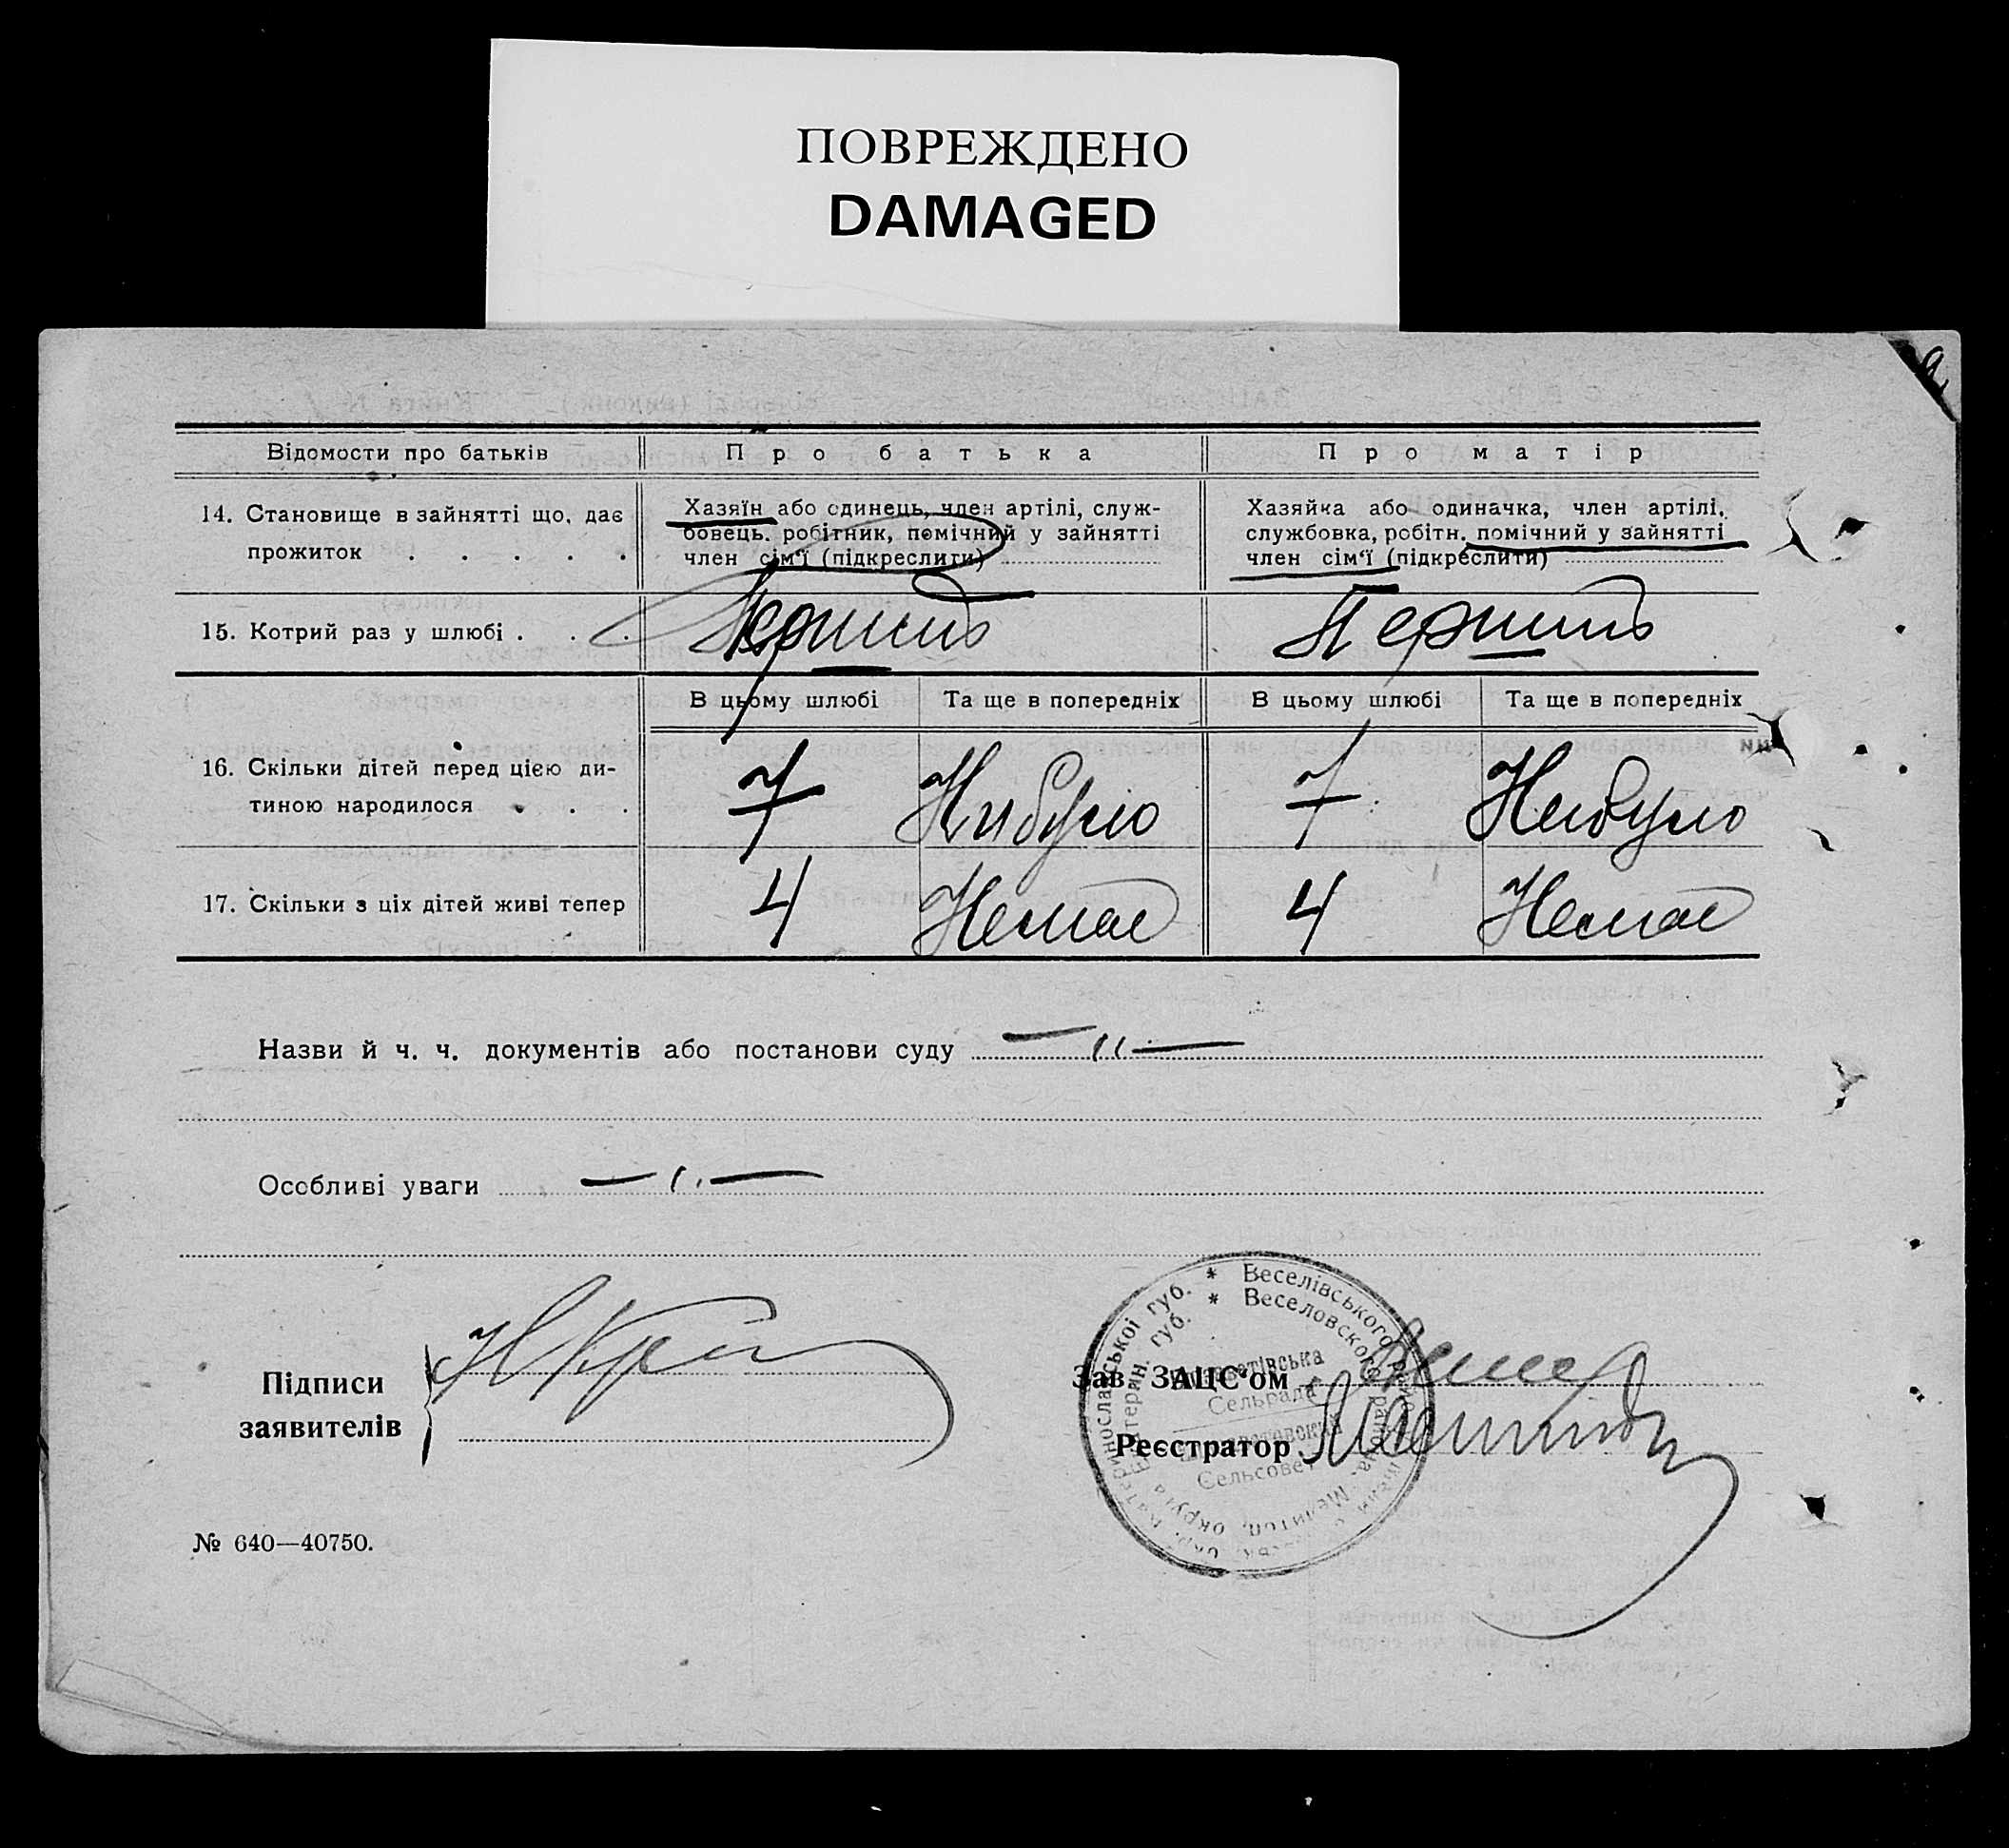 ПОВРЕЖДЕНО
DAMAGED
Відомости про батьків
Про батька
Про матір
14. Становище в зайнятті що, дає
прожиток . . . . .
Хазяїн або одинець, член артілі, служ-
бовець. робітник, помічний у зайнятті
член сім'ї (підкреслити)
Хазяйка або одиначка, член артілі,
службовка, робітн. помічний у зайнятті
член сім'ї (підкреслити)
15. Котрий раз у шлюбі . . .
Першит
Першит
В цьому шлюбі
Та ще в попередніх
В цьому шлюбі
Та ще в попередніх
16. Скільки дітей перед цією ди-
тиною народилося . . .
7
Нибуло
7
Небуло
17. Скільки з ціх дітей живі тепер
4
Немае
4
Немае
Назви й ч. ч. документів або постанови суду —〃 —
Особливі уваги — 〃 —
Підписи
заявителів
Зав. ЗАЦС'ом
Реєстратор
* Веселівського
* Веселовского района, Мелитоп. округа Екатерин. губ.
Сельрада
Сельсовет
№ 640—40750.